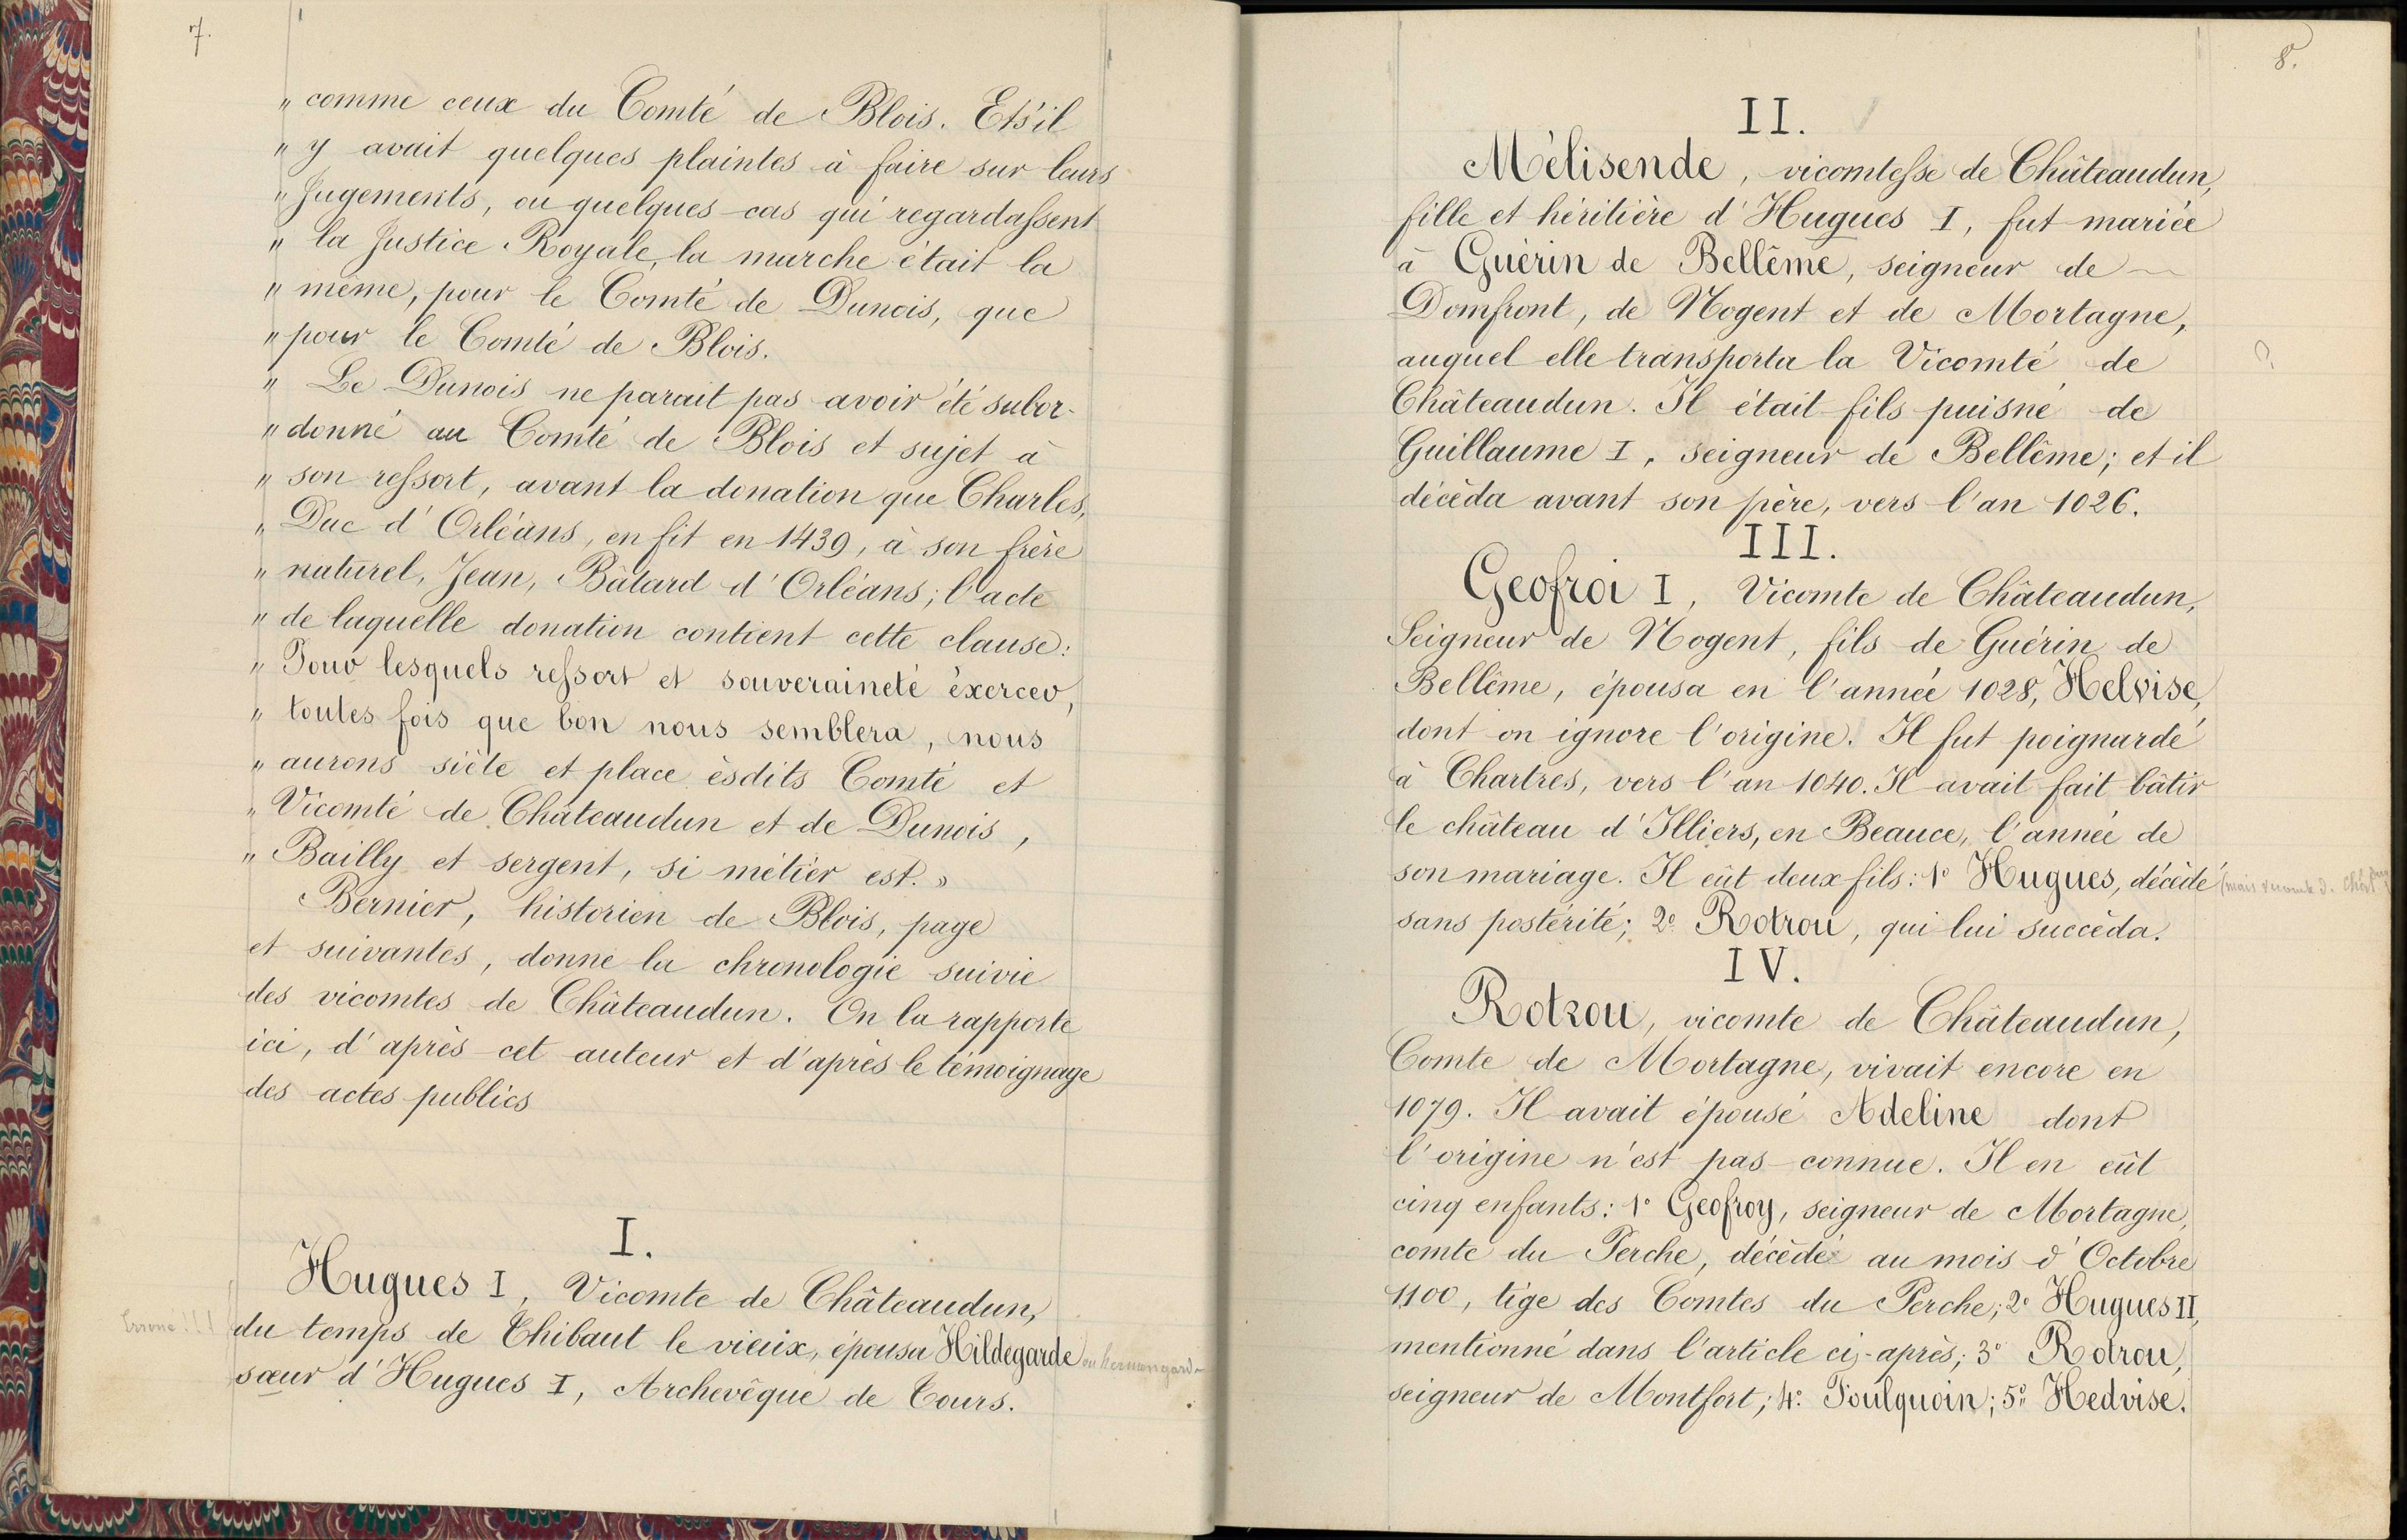 7.
" comme ceux du Comté de Blois. Et s'il
" y avait quelques plaintes à faire sur leurs
" Jugements, ou quelques cas qui regardassent
" la Justice Royale, la marche était la
" même, pour le Comté de Dunois, que
" pour le Comté de Blois.
" Le Dunois ne parait pas avoir été subor-
" donné au Comté de Blois et sujet à
" son ressort, avant la donation que Charles,
" Duc d'Orléans, en fit en 1439, à son frère
" naturel, Jean, Bâtard d'Orléans; l'acte
" de laquelle donation contient cette clause:
" Pour lesquels ressort et souveraineté éxercer,
" toutes fois que bon nous semblera, nous
" aurons siéte et place èsdits Comté et
" Vicomté de Châteaudun et de Dunois,
" Bailly et sergent, si métier est. »
Bernier, historien de Blois, page
et suivantes, donne la chronologie suivie
des vicomtes de Châteaudun. On la rapporte
ici, d'après cet auteur et d'après le témoignage
des actes publics
I.
Hugues I, Vicomte de Châteaudun,
Errone !!! du temps de Thibaut le vieux, épousa Hildegarde ou hermengarde
sœur d'Hugues I, Archevêque de Tours.
8.
II.
Mélisende, vicomtesse de Châteaudun,
fille et héritière d'Hugues I, fut mariée
à Guérin de Bellême, seigneur de
Domfront, de Nogent et de Mortagne,
auquel elle transporta la Vicomté de ?
Châteaudun. Il était fils puisné de
Guillaume I, seigneur de Bellême; et il
décéda avant son père, vers l'an 1026.
III.
Geofroi I, Vicomte de Châteaudun,
Seigneur de Nogent, fils de Guérin de
Bellême, épousa en l'année 1028, Helvise,
dont on ignore l'origine. Il fut poignardé
à Chartres, vers l'an 1040. Il avait fait bâtir
le château d'Illiers, en Beauce, l'année de
son mariage. Il eût deux fils: 1° Hugues, décédé (mais vicomte d. Chât
sans postérité; 2° Rotrou, qui lui succéda.
IV.
Rotrou, vicomte de Châteaudun,
Comte de Mortagne, vivait encore en
1079. Il avait épousé Adeline dont
l'origine n'est pas connue. Il en eût
cinq enfants: 1° Geofroy, seigneur de Mortagne,
comte du Perche, décédé au mois d'Octobre
1100, tige des Comtes du Perche; 2° Hugues II,
mentionné dans l'article ci-après; 3° Rotrou,
seigneur de Montfort; 4° Foulquoin; 5° Hedvise.